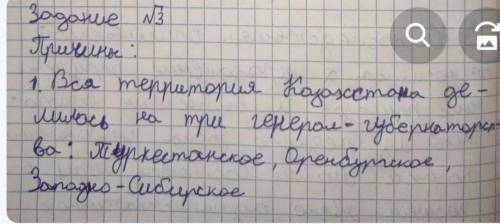 Задание №3
Причины:
1. Вся территория Казахстана де-
лилось на три генерал-губернаторст-
ва: Туркестанское, Оренбургское,
Западно-Сибирское